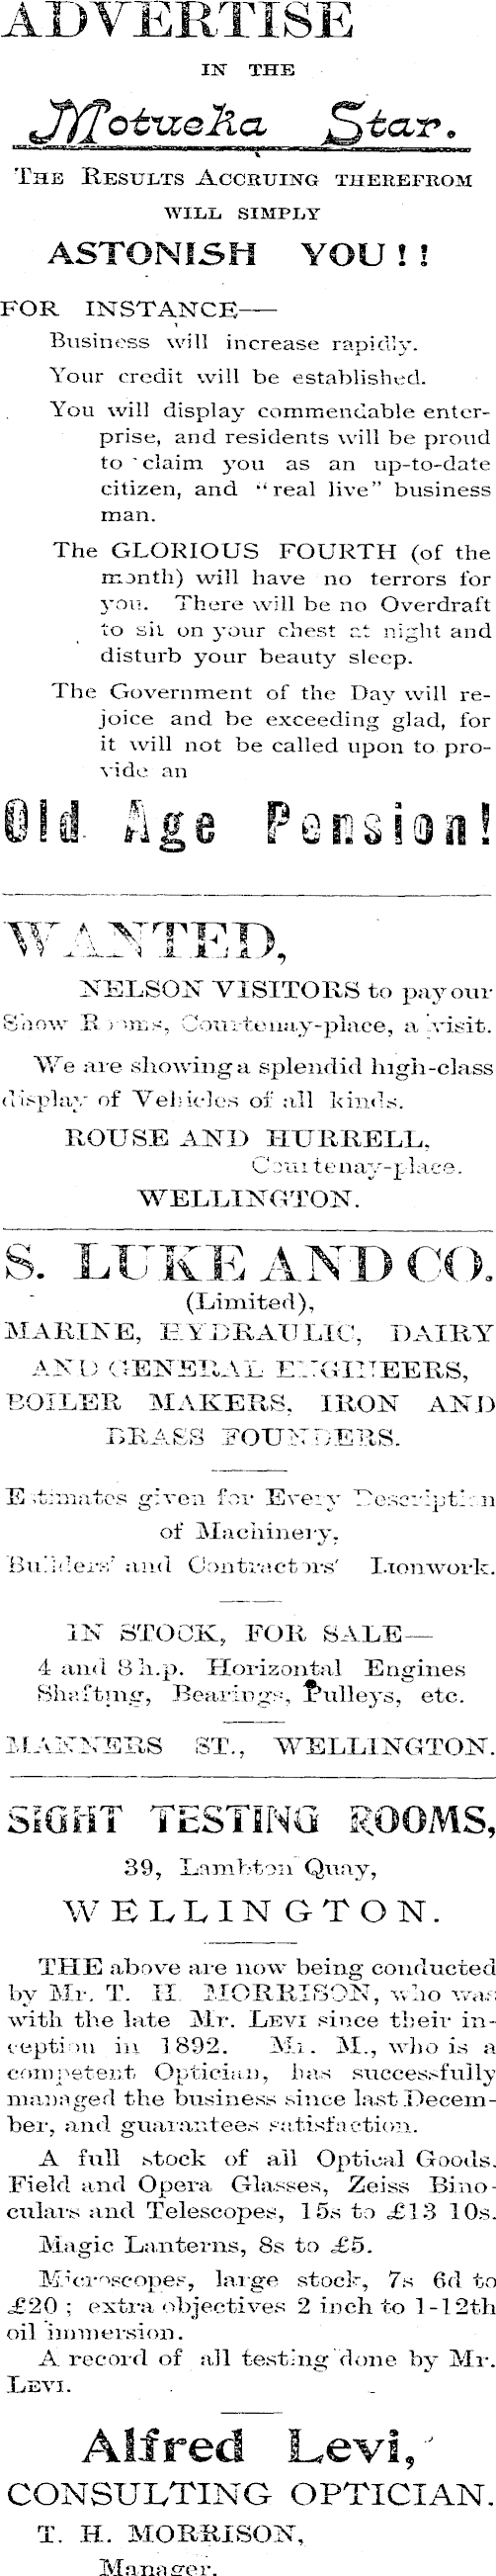 ADVERTISE
IN THE
Motueka Star.
THE RESULTS ACCRUING THEREFROM
WILL SIMPLY
ASTONISH YOU!!
FOR INSTANCE—
Business will increase rapidly.
Your credit will be established.
You will display commendable enter-
prise, and residents will be proud
to claim you as an up-to-date
citizen, and "real live" business
man.
The GLORIOUS FOURTH (of the
month) will have no terrors for
you. There will be no Overdraft
to sit on your chest at night and
disturb your beauty sleep.
The Government of the Day will re-
joice and be exceeding glad, for
it will not be called upon to pro-
vide an
Old Age Pension!
WANTED,
NELSON VISITORS to pay our
Show Rooms, Courtenay-place, a visit.
We are showing a splendid high-class
display of Vehicles of all kinds.
ROUSE AND HURRELL,
Courtenay-place.
WELLINGTON.
S. LUKE AND CO.
(Limited),
MARINE, HYDRAULIC, DAIRY
AND GENERAL ENGINEERS,
BOILER MAKERS, IRON AND
BRASS FOUNDERS.
Estimates given for Every Description
of Machinery,
Builders' and Contractors' Ironwork.
IN STOCK, FOR SALE—
4 and 8 h.p. Horizontal Engines
Shafting, Bearings, Pulleys, etc.
MANNERS ST., WELLINGTON.
SIGHT TESTING ROOMS,
39, Lambton Quay,
WELLINGTON.
THE above are now being conducted
by Mr. T. H. MORRISON, who was
with the late Mr. LEVI since their in-
ception in 1892. Mr. M., who is a
competent Optician, has successfully
managed the business since last Decem-
ber, and guarantees satisfaction.
A full stock of all Optical Goods.
Field and Opera Glasses, Zeiss Bino-
culars and Telescopes, 15s to £13 10s.
Magic Lanterns, 8s to £5.
Microscopes, large stock, 7s 6d to
£20; extra objectives 2 inch to 1-12th
oil immersion.
A record of all testing done by Mr.
LEVI.
Alfred Levi,
CONSULTING OPTICIAN.
T. H. MORRISON,
Manager.